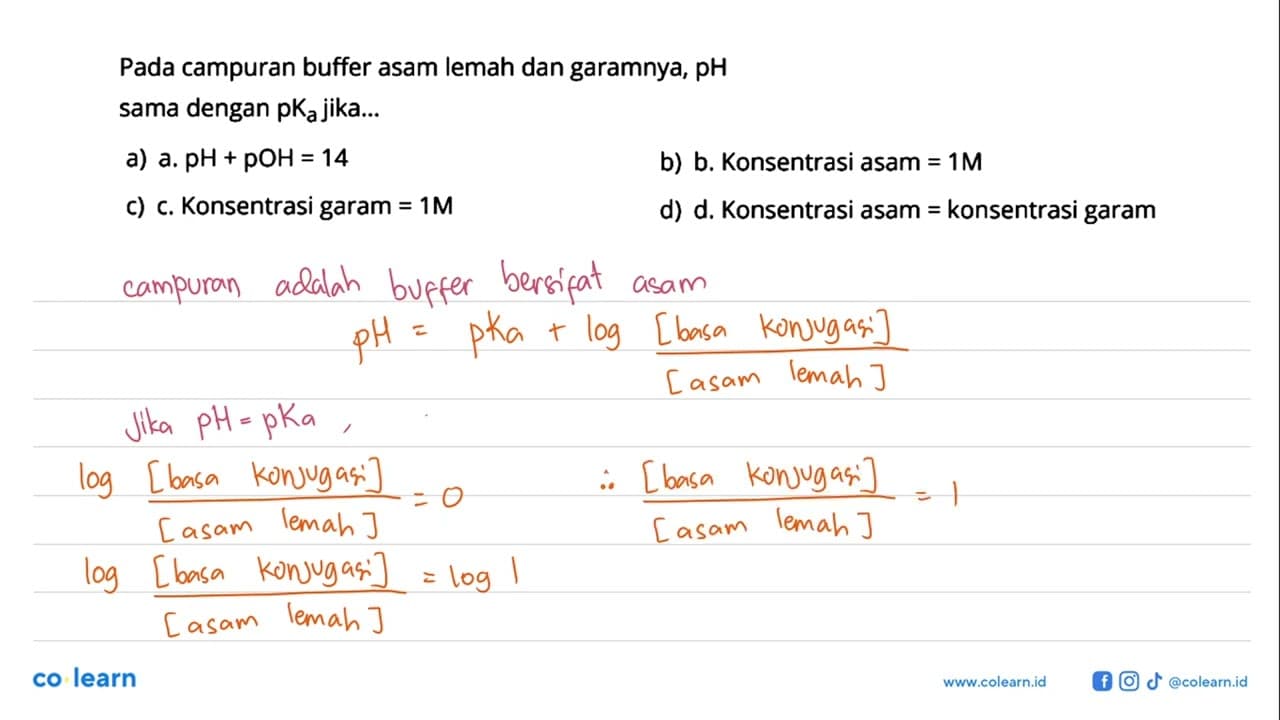 Pada campuran buffer asam lemah dan garamnya, pH
sama dengan pKₐ jika...
a) a. pH + pOH = 14
b) b. Konsentrasi asam = 1M
c) c. Konsentrasi garam = 1M
d) d. Konsentrasi asam = konsentrasi garam
campuran adalah buffer bersifat asam
pH = pKa + log [basa konjugasi]
[asam lemah]
Jika pH = pKa ,
log [basa konjugasi] = 0
[asam lemah]
∴ [basa konjugasi] = 1
[asam lemah]
log [basa konjugasi] = log 1
[asam lemah]
co learn
www.colearn.id
@colearn.id